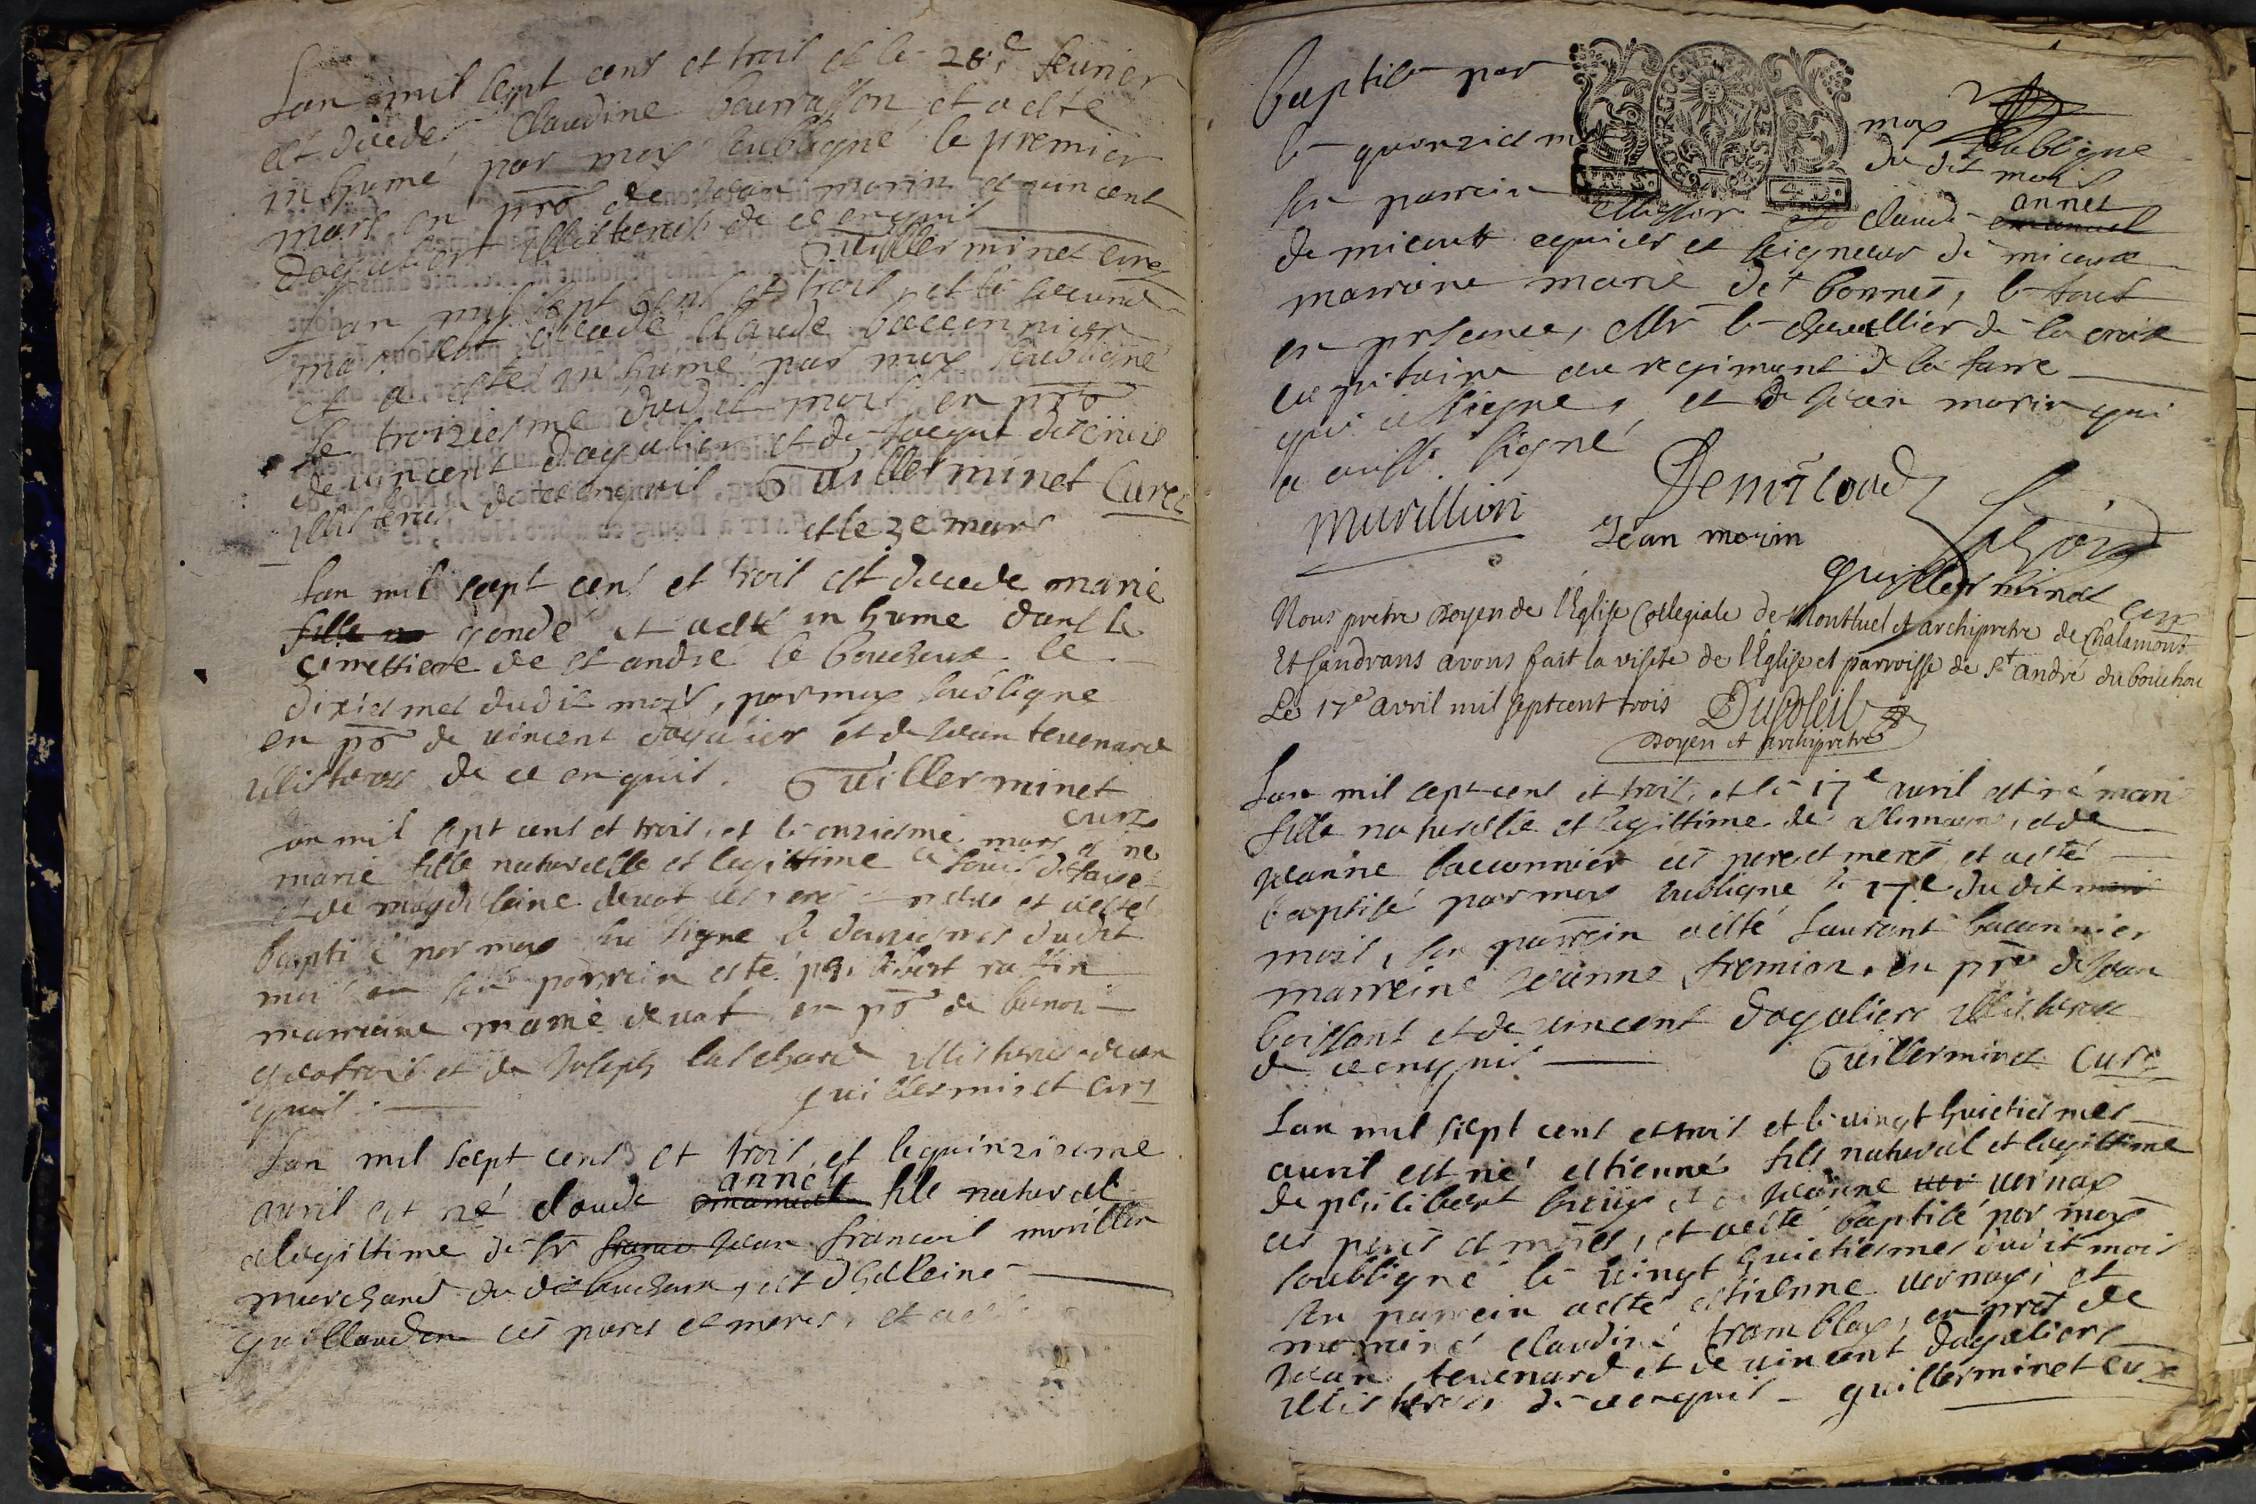 Lan mil sept cens et trois et le 28e feurier
est décédé Claudine bourrasson et a esté
inhumé par moy soubsigné le premier
mars en pnce de Jean morin et vincent
dagalier illisterés de ce enquis
Guillerminet curé
Lan mil sept cens et trois, et le second
mars est décédé claude bacconnier
et a esté inhumé par moy soubsigné
le troiziesme dudit mois en pnce
de vincent dagalier et de
illisterés de ce enquis Guillerminet Curé
et le 3e mars
Lan mil sept cens et trois est décédé marie
fille gondé et a esté inhumé dans le
cimettiere de st andré le boucheux le
dixiesmes dudit mois, par moy soubsigne
en pnce de vincent dagalier et de Jean tevenard
illisteres de ce enquis. Guillerminet
curé
an mil sept cens et trois, et le onziesme mars est né
marie fille naturelle et legittime de
et de magdelaine devot ses peres et meres et a esté
baptisé par moy soubsigne le douziesmes dudit
mois son parrein a esté philibert ratin
marraine marie devot en pnce de benoi
et de Joseph illisteres de ce en
quis. guillerminet curé
Lan mil sept cens et trois, et le quinziesme
avril est né claude anné emanuel fils naturel
et legittime de sr Jean francois murillon
marchand du dit bucheux, et d helleine
guillaudon ses peres et meres, et a esté
baptise par moy soubsigne
le quinziesme du dit mois
son parrein messire claude annet emanuel
de micout equier et seigneur de micout
marraine marie de bonnes, le tout
en presence, Mr le chevallier de la croix
capitaine au regiment de la farre
qui a signé, et de Jean morin qui
a aussi signé
Murillion Demicoud
Jean morin
guillerminet curé
Nous pretre Doyen de l'Eglise Collegiale de Montluel et archipretre de Chalamont
Et Sandrans avons fait la visite de l'Eglise et parroisse de St andré du bouchou
Le 17e avril mil sept cent trois Dusoleil
Doyen et archipretre
Lan mil sept cens et trois, et le 17e avril est né mari
fille naturelle et legittime de , et de
Jeanne bacconnier ses pere et meres et a esté
baptisé par moy soubsigne le 17e du dit mois
mois, son parrein a esté Laurant baconnier
marreine Jeanne fremion, en pnce de Jean
boissont et de vincent dagaliers illisteres
de ce enquis Guillerminet Curé
Lan mil sept cens et trois et le vingt huictiesmes
avril est né estienne fils naturel et legittime
de philibert broux et de Jeanne ver vernay
ses peres et meres, et a esté baptisé par moy
soubsigné le vingt huictiesmes dudit mois
son parrein a esté estienne vernay, et
marreine claudine tramblay, en pres de
Jean tevenard et de vincent dagaliers
illisteres de ce enquis - guillerminet curé